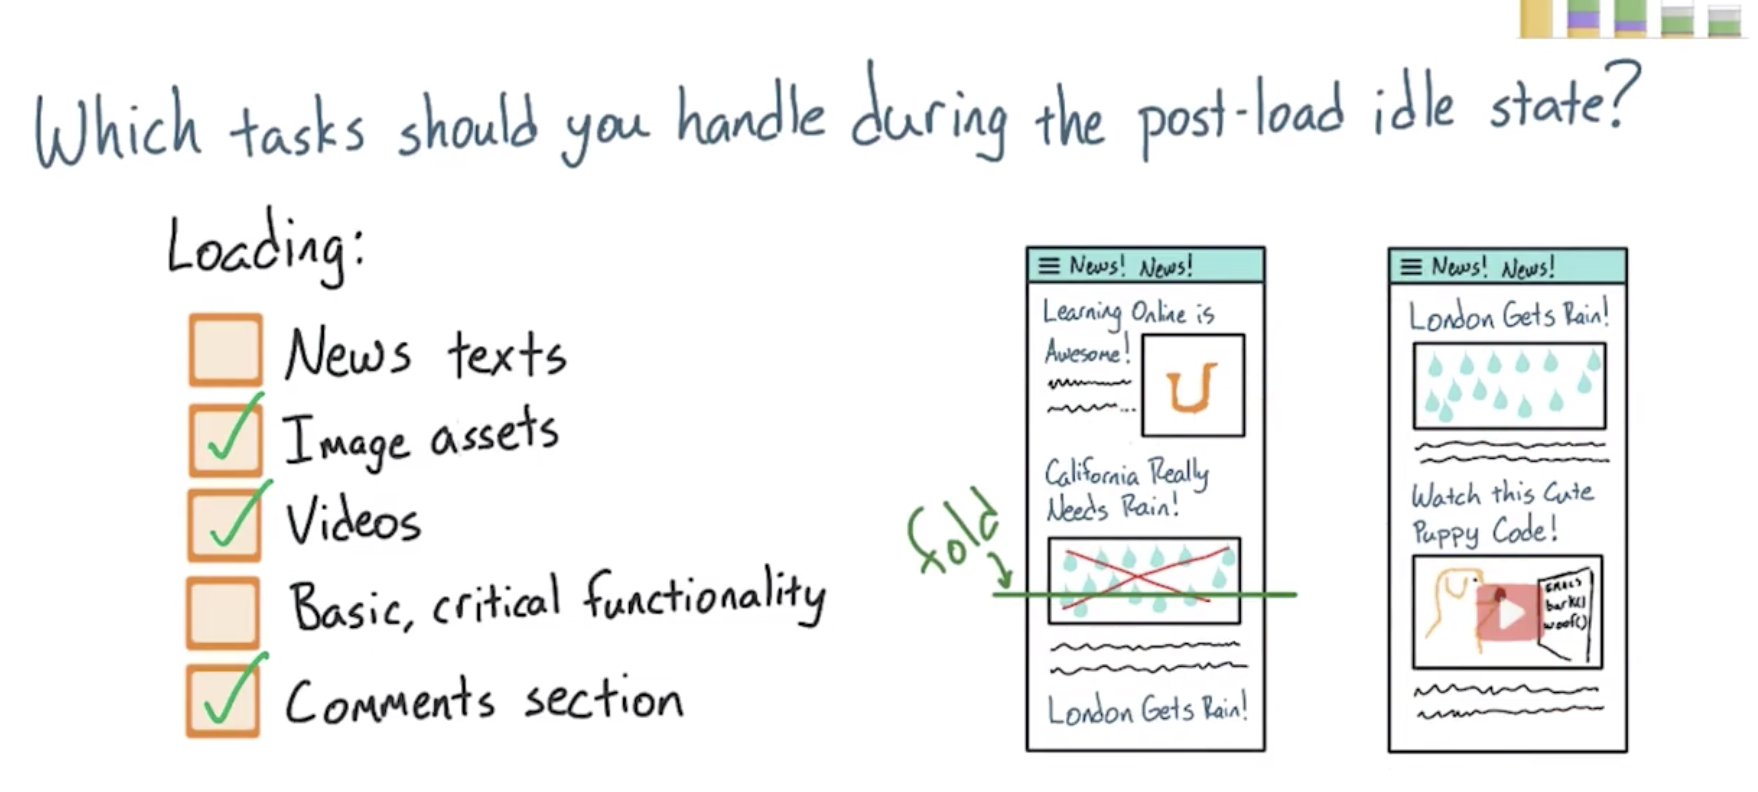 Which tasks should you handle during the post-load idle state?
Loading:
News texts
Image assets
Videos
Basic, critical functionality
Comments section
fold
News! News!
Learning Online is
Awesome!
U
California Really
Needs Rain!
London Gets Rain!
News! News!
London Gets Rain!
Watch this Cute
Puppy Code!
U
EMACS
bark()
woof()